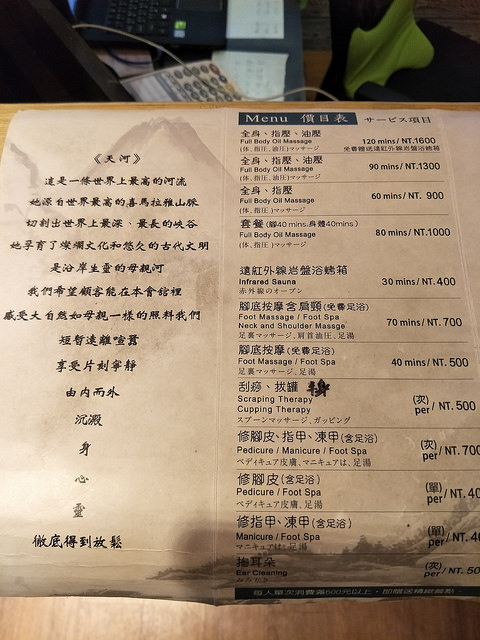 《天河》
這是一條世界上最高的河流
她源自世界最高的喜馬拉雅山脈
切割出世界上最深、最長的峽谷
她孕育了燦爛文化和悠久的古代文明
是沿岸生靈的母親河
我們希望顧客能在本會館裡
感受大自然如母親一樣的照料我們
短暫遠離喧囂
享受片刻寧靜
由內而外
沉澱
身
心
靈
徹底得到放鬆
Menu 價目表 サービス項目
全身、指壓、油壓
Full Body Oil Massage 120 mins/ NT.1600
(体、指圧、油圧)マッサージ 免費贈送遠紅外線岩盤浴烤箱
全身、指壓、油壓
Full Body Oil Massage 90 mins/ NT.1300
(体、指圧、油圧)マッサージ
全身、指壓
Full Body Oil Massage 60 mins/ NT. 900
(体、指圧)マッサージ
套餐(腳40 mins.身體40mins)
Full Body Oil Massage 80 mins/ NT.1000
(体、指圧)マッサージ
遠紅外線岩盤浴烤箱
Infrared Sauna 30 mins/ NT.400
赤外線のオーブン
腳底按摩含肩頸(免費足浴)
Foot Massage / Foot Spa
Neck and Shoulder Massge 70 mins/ NT. 700
足裏マッサージ、肩首油圧、足湯
腳底按摩(免費足浴)
Foot Massage / Foot Spa 40 mins/ NT. 500
足裏マッサージ、足湯
刮痧、拔罐
Scraping Therapy (次)
Cupping Therapy per/ NT. 500
スプーンマッサージ、ガッピング
修腳皮、指甲、凍甲(含足浴) (次)
Pedicure / Manicure / Foot Spa per/ NT. 700
ペディキュア皮膚、マニキュアは、足湯
修腳皮(含足浴) (單)
Pedicure / Foot Spa per/ NT. 40
ペディキュア皮膚、足湯
修指甲、凍甲(含足浴) (單)
Manicure / Foot Spa per/ NT. 40
マニキュアは、足湯
掏耳朵 (次)
Ear Cleaning per/ NT. 50
みみかき
每人單次消費滿600元以上，即贈送精緻餐點